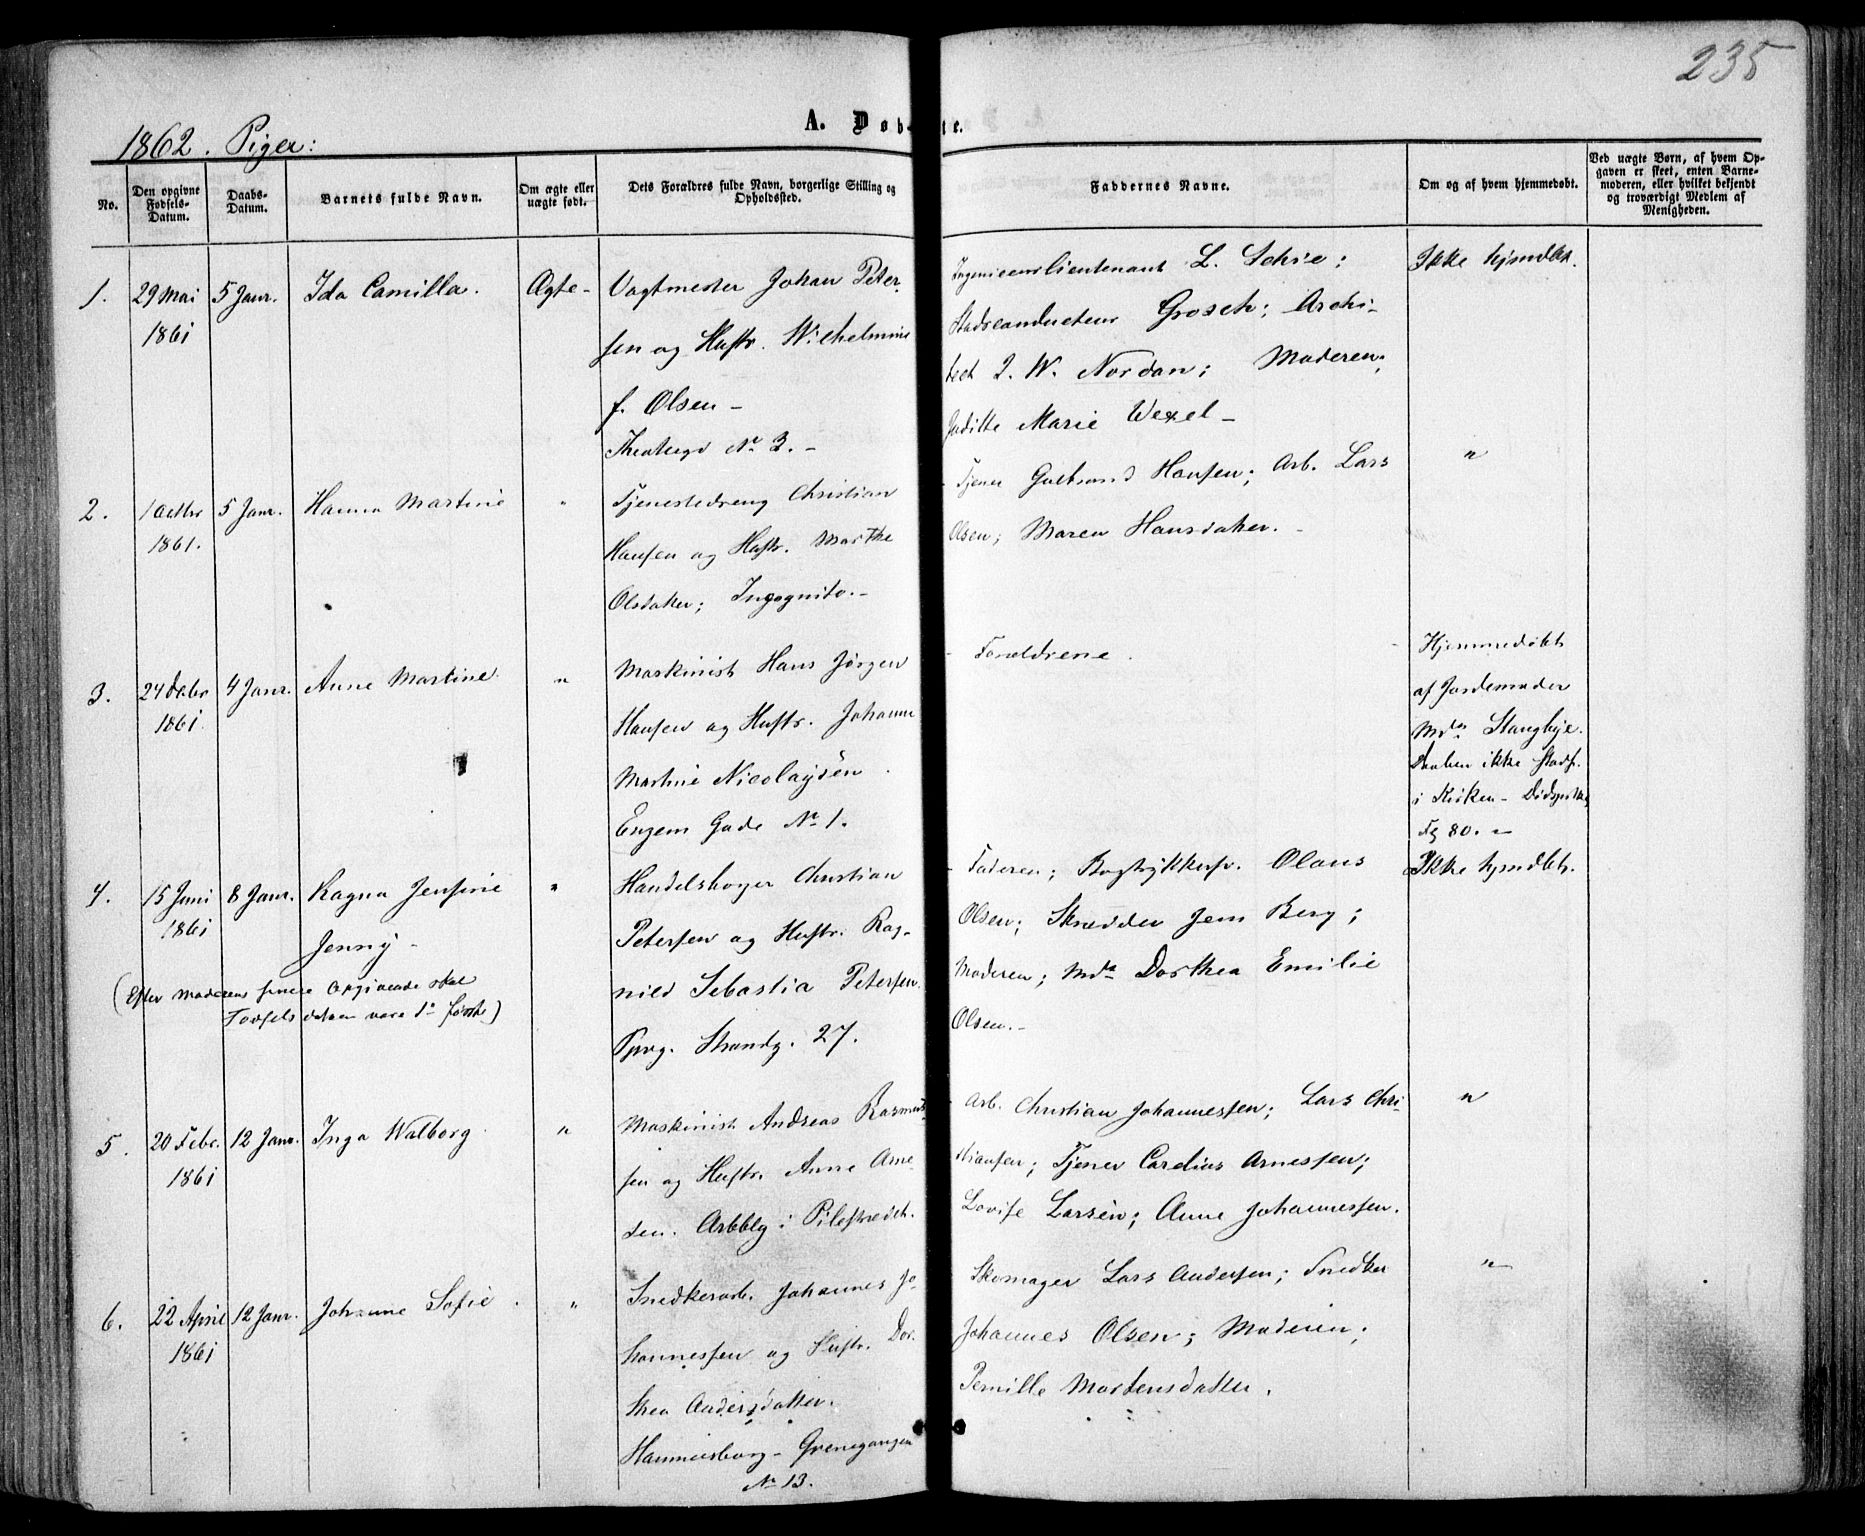 235
A. Døb-te.
1862. Piger:
No.
Den opgivne Fødsels-Datum.
Daabs-Datum.
Barnets fulde Navn.
Om ægte eller uægte født.
Dets Forældres fulde Navn, borgerlige Stilling og Opholdssted.
Faddernes Navne.
Om og af hvem hjemmedøbt.
Ved uægte Børn, af hvem Op-
gaven er skeet, enten Barne-
moderen, eller hvilket bekjendt
og troværdigt Medlem af
Menigheden.
1.
29 Mai
1861
5 Janr.
Ida Camilla.
Ægte-
Vagtmester Johan Peter-
sen og Hustr. Wilhelmine
f. Olsen -
Theatergd No 3. -
Ingenieurlieutenant L. Schie;
Stadsconducteur Grosch; Archi-
tect J. W. Nordan; Moderen;
Marie Wexel -
Ikke hjmdbt.
2.
1 Octbr
1861.
5 Janr.
Hanna Martine
"
Tjenestedreng Christian
Hansen og Hustr. Marthe
Olsdatter; Incognito. -
Tjener Gulbrand Hansen; Arb. Lars
Olsen; Maren Hansdatter. -
"
3.
24 Decbr
1861.
4 Janr.
Anne Martine.
"
Maskinist Hans Jørgen
Hansen og Hustr. Johanne
Martine Nicolaysen.
Engens Gade No 1.
Forældrene.
Hjemmedøbt
af Jordemoder
Mda Stangbye.
Daaben ikke stadf.
i Kirken -
Fg 80. -
4.
15 Juni
1861
8 Janr.
Ragna Jensine
Jenny -
(Efter Moderens senere Opgivende skal
Fødselsdatoen være 1ste første)
"
Handelsborger Christian
Petersen og Hustr. Rag-
nild Sebastia Petersen.
Pprvg. Strandg. 27.
Faderen; Bogtrykkersv. Olaus
Olsen; Skrædder Jens Berg;
Moderen; Mda Dorthea Emilie
Olsen. -
Ikke hjmdbt.
5.
20 Febr.
1861
12 Janr.
Inga Walborg.
"
Maskinist Andreas Rasmus-
sen og Hustr. Anne Arne-
sen. Arbblg i Pilestredet.
Arb. Christian Johannessen; Lars Chri-
stiansen; Tjener Carelius Arnessen;
Lovise Larsen; Anne Johannessen.
"
6.
22 April
1861
12 Janr.
Johanne Sofie.
"
Snedkerarb. Johannes Jo-
hannessen og Hustr. Dor-
thea Andersdatter.
Hammersborg - Grænsegangen
No 13.
Skomager Lars Andersen; Snedker
Johannes Olsen; Moderen;
Pernille Mortensdatter.
"